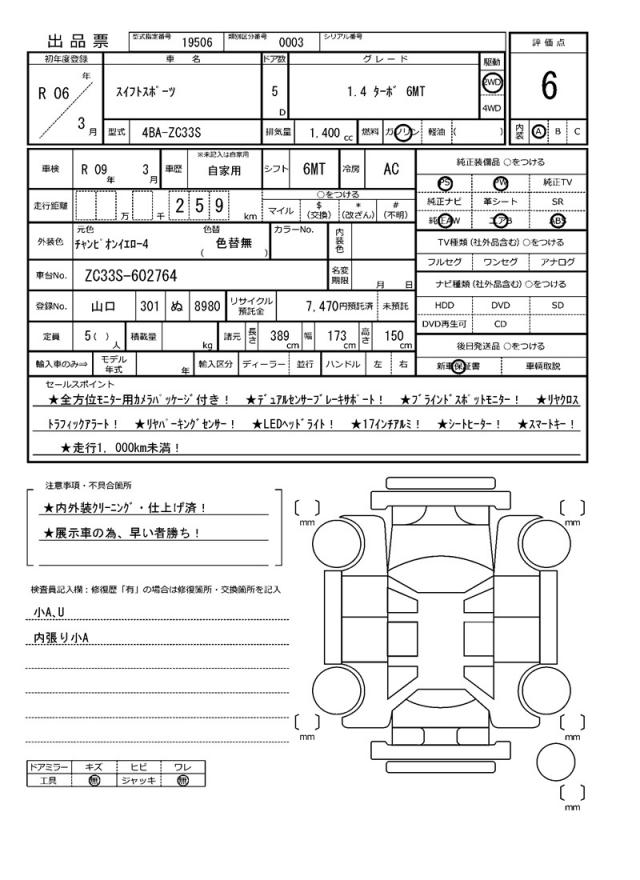 出品票
型式指定番号 19506 類別区分番号 0003 シリアル番号
評価点
6
内装 A B C
初年度登録 車名 ドア数 グレード 駆動
R 06 年 3 月 スイフトスポーツ 5 D 1.4 ターボ 6MT 2WD 4WD
型式 4BA-ZC33S 排気量 1.400 cc 燃料 ガソリン 軽油 ( )
車検 R 09 年 3 月 車歴 ※未記入は自家用 自家用 シフト 6MT 冷房 AC
走行距離 万 千 2 5 9 km ○をつける
マイル $(交換) *(改ざん) #(不明)
外装色 元色 チャンピオンイエロー4 色替 ( 色替無 ) カラーNo. 内装色
車台No. ZC33S-602764 名変期限 月 日
登録No. 山口 301 ぬ 8980 リサイクル預託金 7,470円預託済 未預託
定員 5( ) 人 積載量 kg 諸元 長さ 389 cm 幅 173 cm 高さ 150 cm
輸入車のみ⇒ モデル年式 年 輸入区分 ディーラー 並行 ハンドル 左 右
純正装備品 ○をつける
PS PW 純正TV
純正ナビ 革シート SR
純正AW エアB ABS
TV種類(社外品含む)○をつける
フルセグ ワンセグ アナログ
ナビ種類(社外品含む)○をつける
HDD DVD SD
DVD再生可 CD
後日発送品 ○をつける
新車保証書 車輌取説
セールスポイント
★全方位モニター用カメラパッケージ付き! ★デュアルセンサーブレーキサポート! ★ブラインドスポットモニター! ★リヤクロス
トラフィックアラート! ★リヤパーキングセンサー! ★LEDヘッドライト! ★17インチアルミ! ★シートヒーター! ★スマートキー!
★走行1,000km未満!
注意事項・不具合箇所
★内外装クリーニング・仕上げ済!
★展示車の為、早い者勝ち!
検査員記入欄:修復歴「有」の場合は修復箇所・交換箇所を記入
小A、U
内張り小A
ドアミラー キズ ヒビ ワレ
工具 無 ジャッキ 無
[ ] mm
[ ] mm
[ ] mm
[ ] mm
[ ] mm